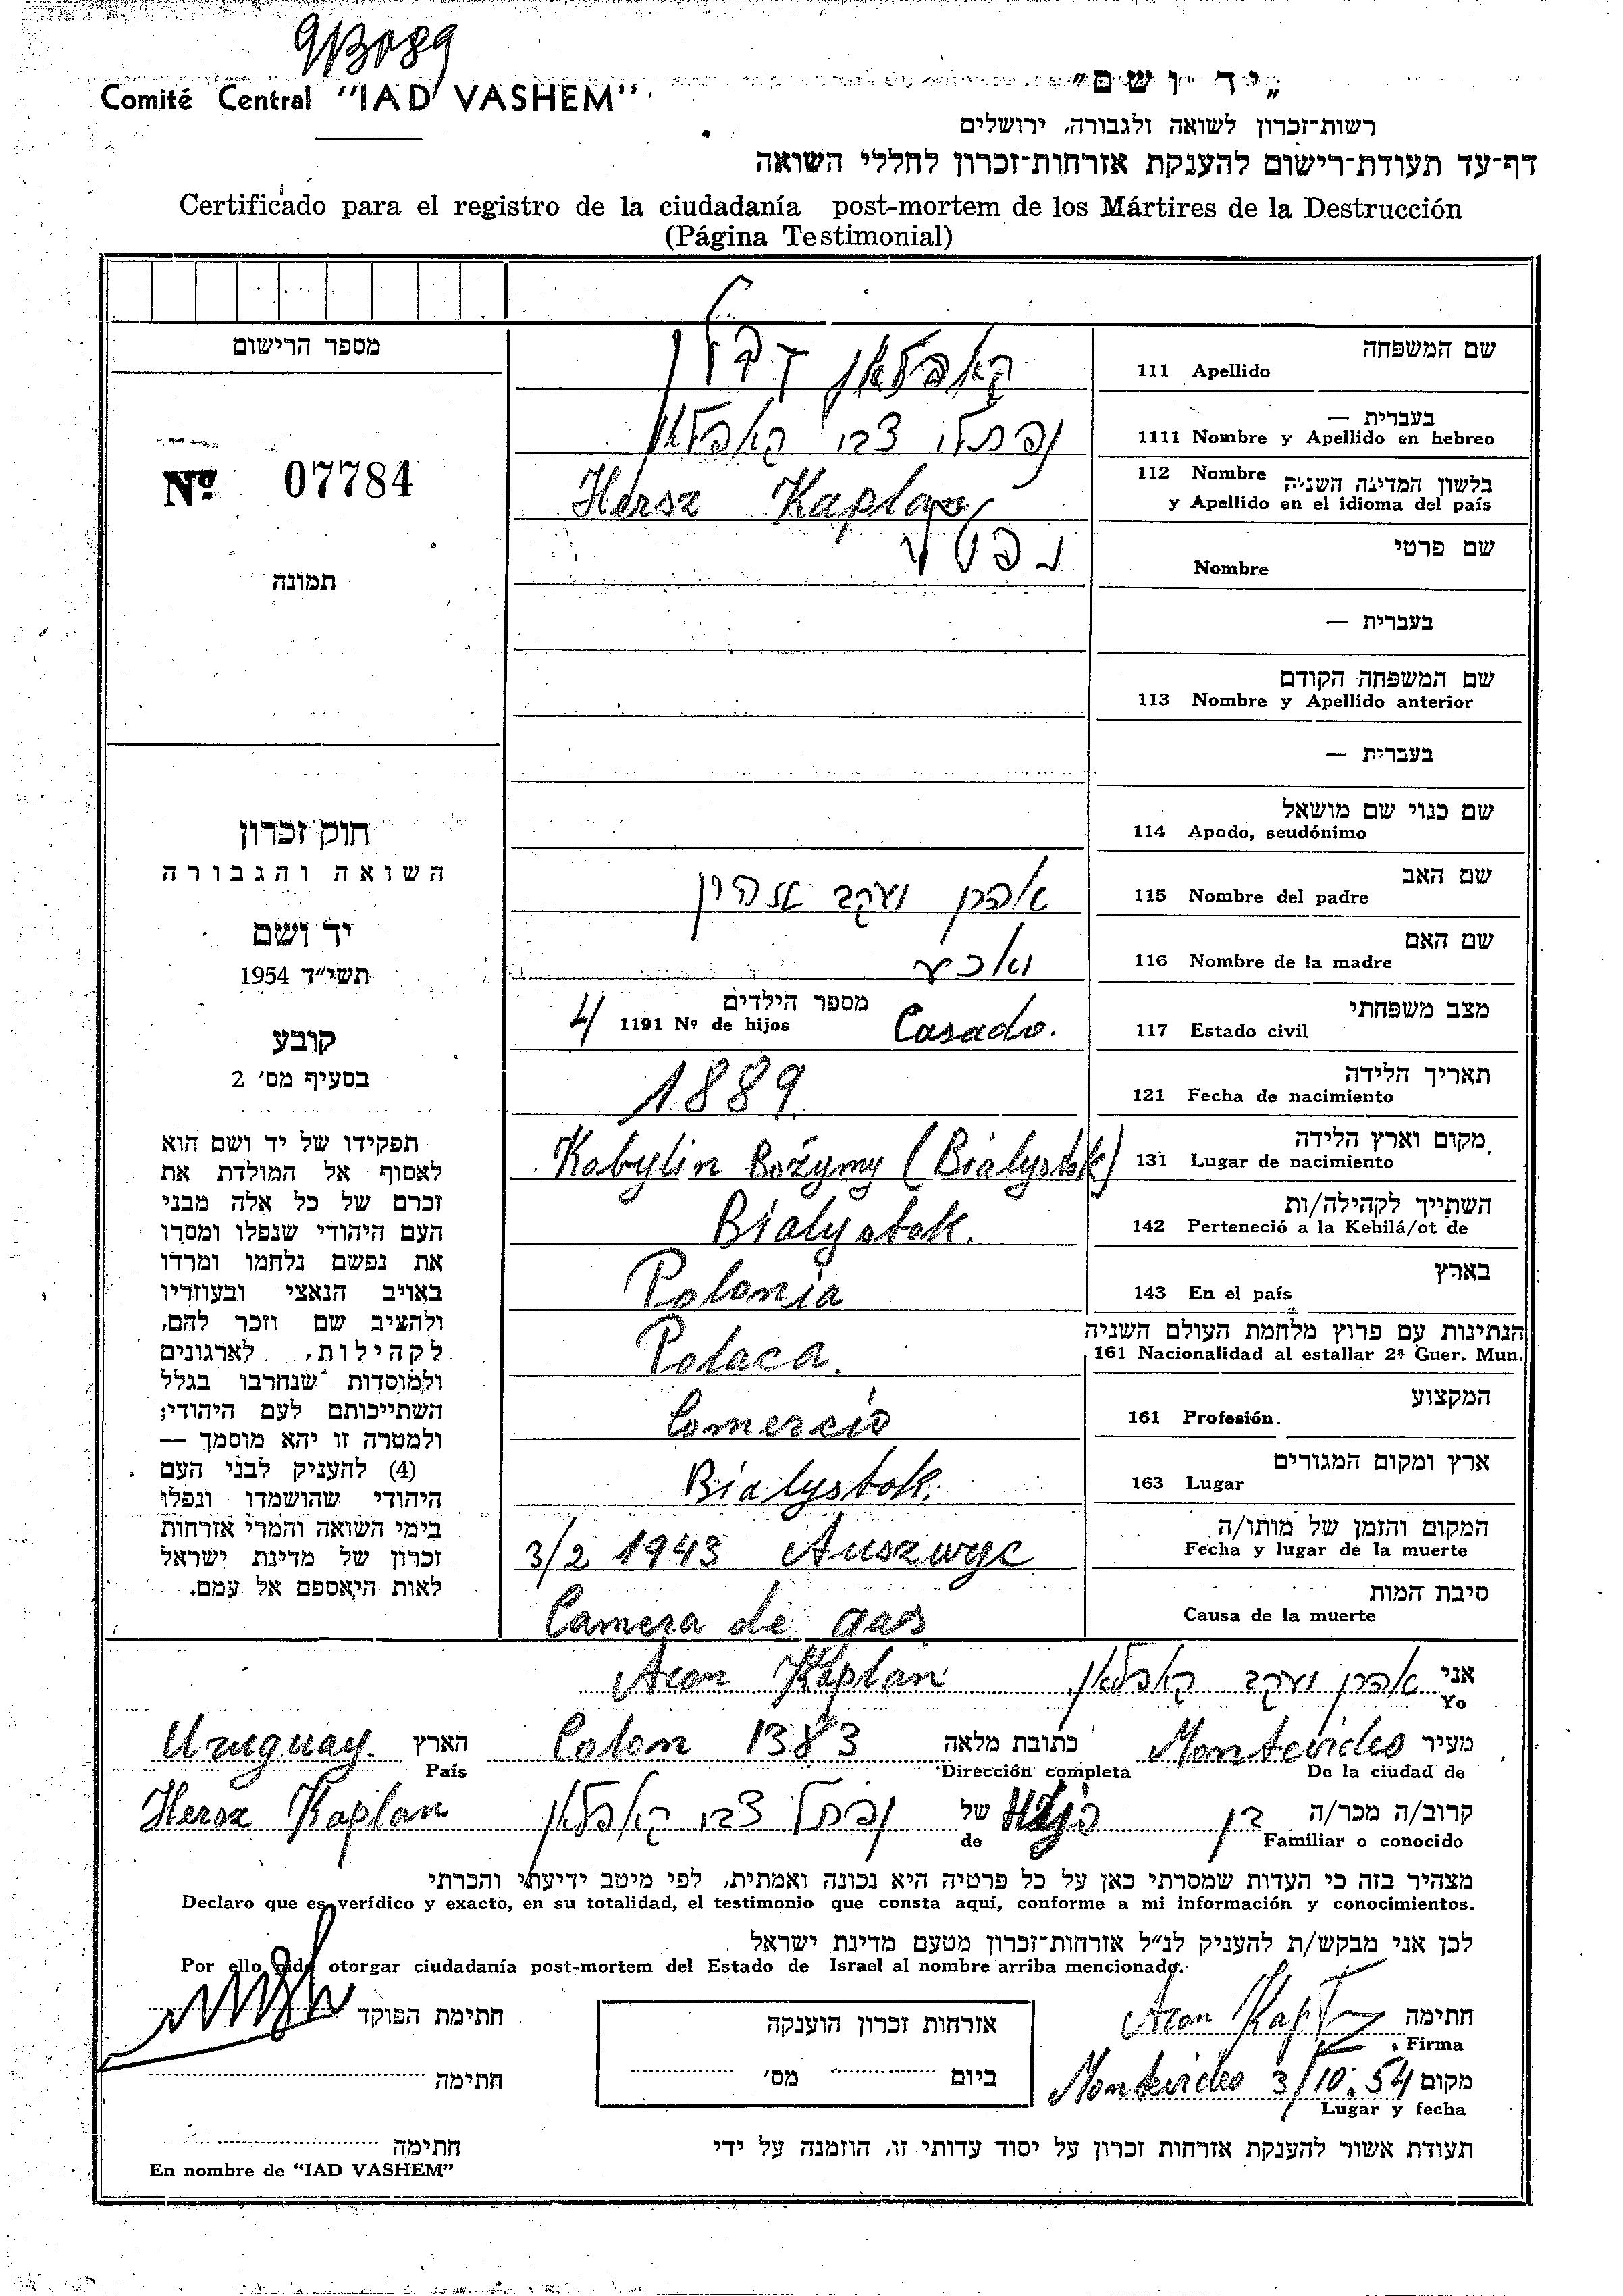 913089
Comité Central "IAD VASHEM"
„יד ושם"
רשות־זכרון לשואה ולגבורה, ירושלים
דף־עד תעודת־רישום להענקת אזרחות־זכרון לחללי השואה
Certificado para el registro de la ciudadanía post-mortem de los Mártires de la Destrucción
(Página Testimonial)
מספר הרישום
Nº 07784
תמונה
חוק זכרון
השואה והגבורה
יד ושם
תשי"ד 1954
קובע
בסעיף מס' 2
תפקידו של יד ושם הוא
לאסוף אל המולדת את
זכרם של כל אלה מבני
העם היהודי שנפלו ומסרו
את נפשם נלחמו ומרדו
באויב הנאצי ובעוזריו
ולהציב שם וזכר להם,
לקהילות, לארגונים
ולמוסדות שנחרבו בגלל
השתייכותם לעם היהודי;
ולמטרה זו יהא מוסמך —
(4) להעניק לבני העם
היהודי שהושמדו ונפלו
בימי השואה והמרי אזרחות
זכרון של מדינת ישראל
לאות היאספם אל עמם.
שם המשפחה
111 Apellido קאפלאן
בעברית —
1111 Nombre y Apellido en hebreo נפתלי צבי קאפלאן
112 Nombre בלשון המדינה השניה
y Apellido en el idioma del país Hersz Kaplan
שם פרטי
Nombre
בעברית —
שם המשפחה הקודם
113 Nombre y Apellido anterior
בעברית —
שם כנוי שם מושאל
114 Apodo, seudónimo
שם האב
115 Nombre del padre אהרן יעקב אהרן
שם האם
116 Nombre de la madre
מצב משפחתי
117 Estado civil Casado.
מספר הילדים
1191 Nº de hijos 4
תאריך הלידה
121 Fecha de nacimiento 1889
מקום וארץ הלידה
131 Lugar de nacimiento Kobylin Bożymy (Bialystok)
השתייך לקהילה/ות
142 Perteneció a la Kehilá/ot de Bialystok.
בארץ
143 En el país Polonia
הנתינות עם פרוץ מלחמת העולם השניה
161 Nacionalidad al estallar 2ª Guer. Mun. Polaca.
המקצוע
161 Profesión. Comercio
ארץ ומקום המגורים
163 Lugar Bialystok.
המקום והזמן של מותו/ה
Fecha y lugar de la muerte 3/2 1943 Auszwyc
סיבת המות
Causa de la muerte Camera de gas
אני אהרן יעקב קאפלאן Aron Kaplan
Yo
מעיר Montevideo כתובת מלאה Colon 1383 הארץ Uruguay.
De la ciudad de Dirección completa País
קרוב/ה מכר/ה בן של נפתלי צבי קאפלאן Hersz Kaplan
Familiar o conocido de
מצהיר בזה כי העדות שמסרתי כאן על כל פרטיה היא נכונה ואמתית, לפי מיטב ידיעתי והכרתי
Declaro que es verídico y exacto, en su totalidad, el testimonio que consta aquí, conforme a mi información y conocimientos.
לכן אני מבקש/ת להעניק לנ"ל אזרחות־זכרון מטעם מדינת ישראל
Por ello pido otorgar ciudadanía post-mortem del Estado de Israel al nombre arriba mencionado.
חתימה Aron Kapl
Firma
אזרחות זכרון הוענקה
ביום מס'
חתימת הפוקד
מקום Montevideo 3/10.54
Lugar y fecha
חתימה
תעודת אשור להענקת אזרחות זכרון על יסוד עדותי זו, הוזמנה על ידי
חתימה
En nombre de "IAD VASHEM"